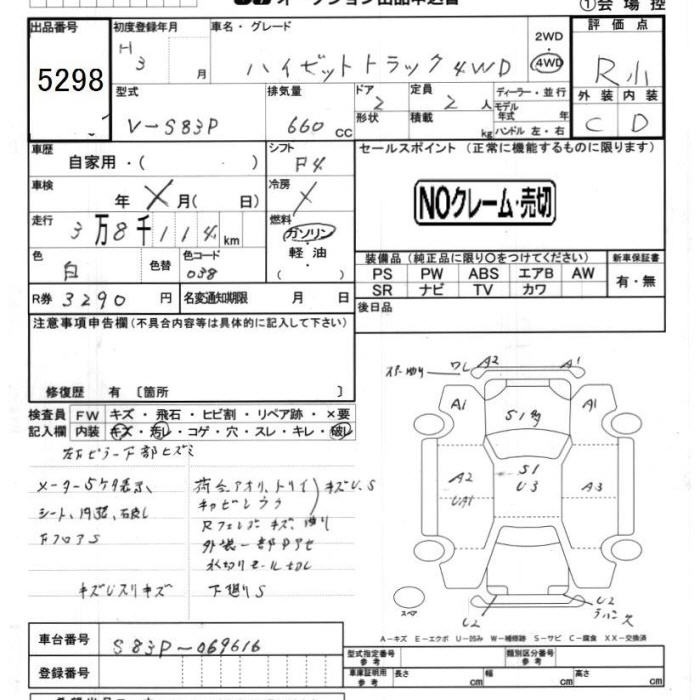 オークション出品申込書
①会場控
出品番号
5298
初度登録年月
H 3 月
車名・グレード
ハイゼットトラック 4WD
2WD
・
4WD
評価点
R小
型式
V-S83P
排気量
660 cc
ドア
2
定員
2 人
形状
積載
kg
ディーラー・並行
モデル年式 年
ハンドル 左・右
外装 内装
C D
車歴
自家用・( )
シフト
F4
セールスポイント(正常に機能するものに限ります)
NOクレーム・売切
車検
年 月( 日)
冷房
走行
3万8千114km
燃料
ガソリン
軽油
( )
色
白
色替
色コード
038
装備品(純正品に限り○をつけてください)
PS PW ABS エアB AW
SR ナビ TV カワ
新車保証書
有・無
R券 3290 円
名変通知期限 月 日
後日品
注意事項申告欄(不具合内容等は具体的に記入して下さい)
修復歴 有〔箇所 〕
検査員記入欄
FW キズ・飛石・ヒビ割・リペア跡・×要
内装 キズ・汚レ・コゲ・穴・スレ・キレ・破レ
左右ピラー下部ヒズミ
メーター5ケタ表示、
キズU.S
外装一部
水切りモール
下廻りS
キズUスリキズ
ワレ A2 A1
A1 S1多 A1
A2 S1 A3
UA1 U3
U2 U2
スペア
A-キズ E-エクボ U-凹み W-補修跡 S-サビ C-腐食 XX-交換済
車台番号
S83P-069616
登録番号
型式指定番号
参考
類別区分番号
参考
車庫証明用
参考
長さ cm 幅 cm 高さ cm